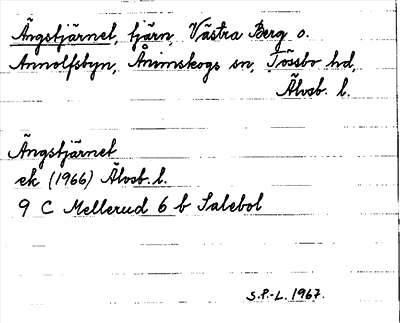 Ängstjärnet, tjärn, Västra Berg o.
Annolfsbyn, Ånimskogs sn, Tössbo hd,
Älvsb. l.
Ängstjärnet
ek (1966) Älvsb. l.
9 C Mellerud 6 b Salebol
S.P.-L. 1967.